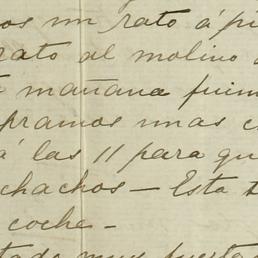 os un rato á pi
rato al molino
mañana fuim
pramos unas c
á las 11 para qu
chachos - Esta t
coche -
tado muy